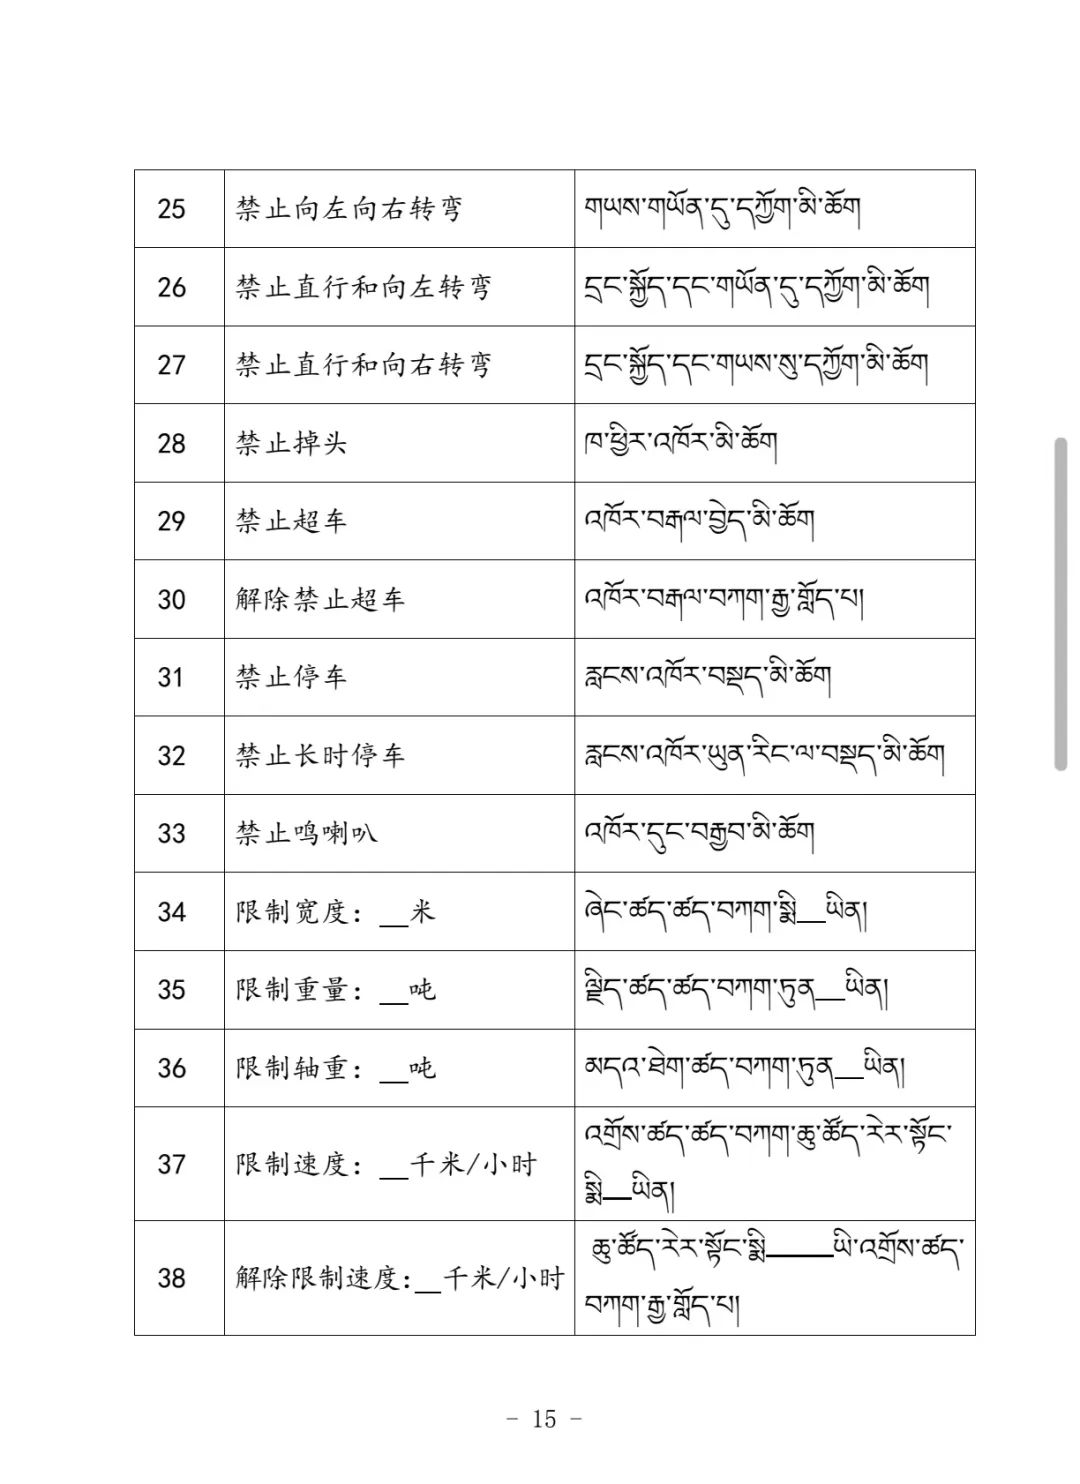 25 禁止向左向右转弯 གཡས་གཡོན་དུ་དཀྱོག་མི་ཆོག
26 禁止直行和向左转弯 དྲང་སྐྱོད་དང་གཡོན་དུ་དཀྱོག་མི་ཆོག
27 禁止直行和向右转弯 དྲང་སྐྱོད་དང་གཡས་སུ་དཀྱོག་མི་ཆོག
28 禁止掉头 ཁ་ཕྱིར་འཁོར་མི་ཆོག
29 禁止超车 འཁོར་བརྒལ་བྱེད་མི་ཆོག
30 解除禁止超车 འཁོར་བརྒལ་བཀག་རྒྱ་གློད་པ།
31 禁止停车 རླངས་འཁོར་བསྡད་མི་ཆོག
32 禁止长时停车 རླངས་འཁོར་ཡུན་རིང་ལ་བསྡད་མི་ཆོག
33 禁止鸣喇叭 འཁོར་དུང་བརྒྱབ་མི་ཆོག
34 限制宽度：__米 ཞེང་ཚད་ཚད་བཀག་སྨི__ཡིན།
35 限制重量：__吨 ལྗིད་ཚད་ཚད་བཀག་ཏུན__ཡིན།
36 限制轴重：__吨 མདའ་ཐེག་ཚད་བཀག་ཏུན__ཡིན།
37 限制速度：__千米/小时 འགྲོས་ཚད་ཚད་བཀག་ཆུ་ཚོད་རེར་སྟོང་
སྨི__ཡིན།
38 解除限制速度:__千米/小时 ཆུ་ཚོད་རེར་སྟོང་སྨི_____ཡི་འགྲོས་ཚད་
བཀག་རྒྱ་གློད་པ།
- 15 -